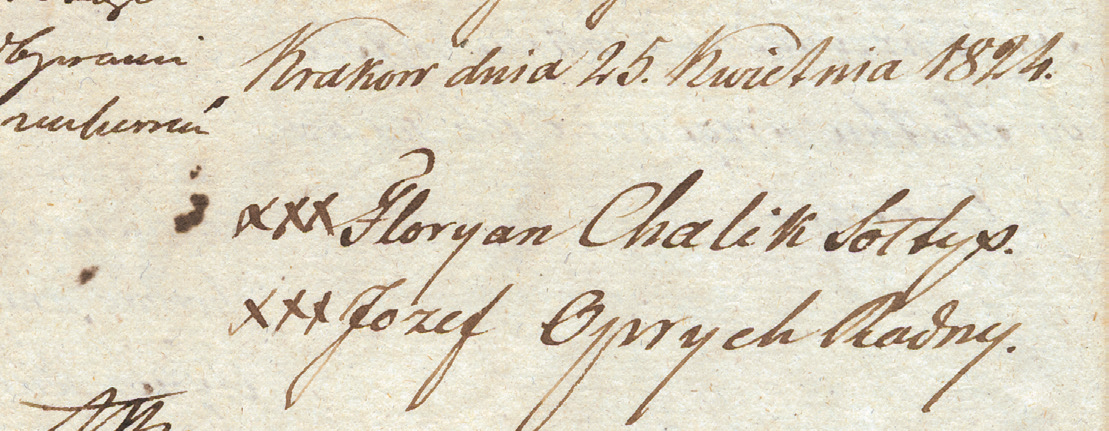 Krakow dnia 25. Kwietnia 1824.
xxx Floryan Chalik Sołtys.
xxx Jozef Oprych Radny.